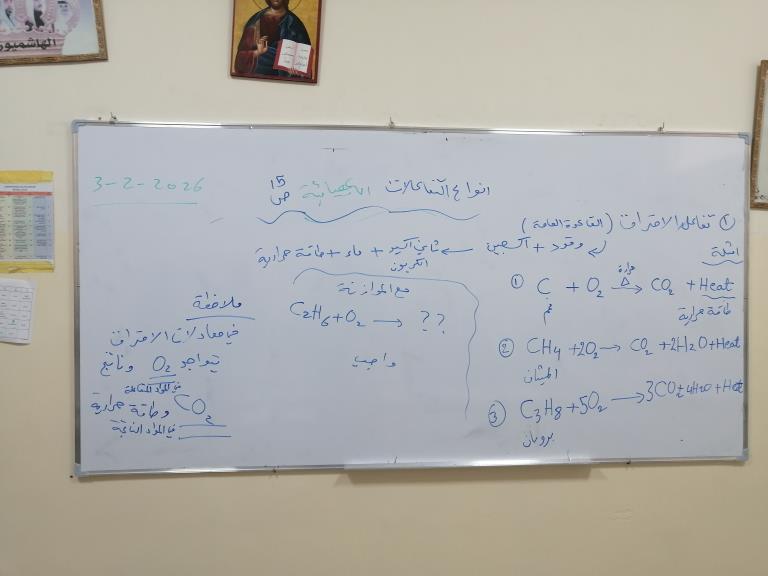 الهاشميون
3-2-2026
انواع التفاعلات الكيميائية ص 15
① تفاعل الاحتراق (القاعدة العامة)
وقود + أكسجين ← ثاني اكسيد الكربون + ماء + طاقة حرارية
امثلة
① C + O₂ —حرارة Δ→ CO₂ + Heat
فحم
طاقة حرارية
② CH₄ + 2O₂ → CO₂ + 2H₂O + Heat
الميثان
③ C₃H₈ + 5O₂ → 3CO₂ + 4H₂O + Heat
بروبان
مع الموازنة
C₂H₆ + O₂ → ??
واجب
ملاحظة
في معادلات الاحتراق
يتواجد O₂ وناتج
في المواد المتفاعلة
CO₂ وطاقة حرارية
في المواد الناتجة